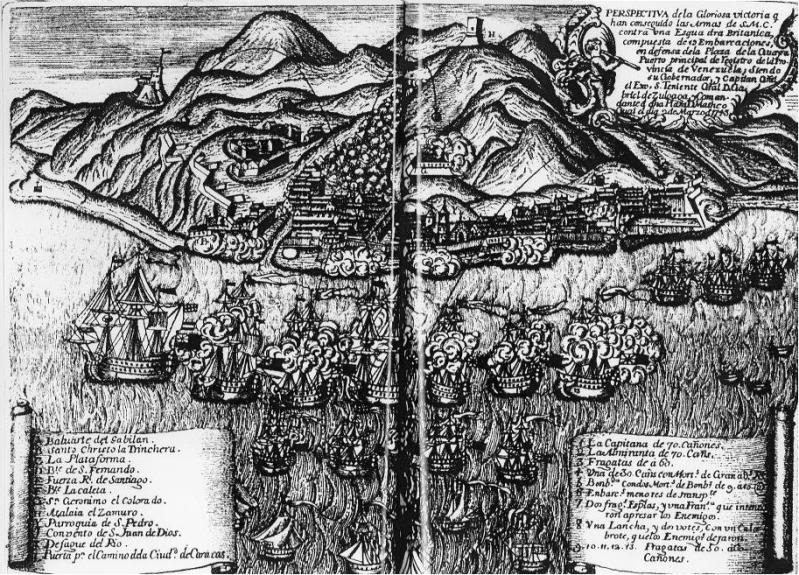 PERSPECTIVA de la Gloriosa victoria q
han conseguido las Armas de S.M.C.
contra una Esqua dra Britanica,
compuesta de 19 Embarraciones,
en defensa dela Plaza de la Guayra
Puerto principal de Registro de la Pro
vincia de Venezuela; Siendo
su Gobernador, y Capitan Gral
el Exo. S. Teniente Gral D. Ga
briel de Zuloaga, y Coman
dante de dha Plaza D. Matheo
Gual el dia 2 de Marzo d 1743
N
Baluarte del Gabilan.
Santo Christo la Trinchera.
La Plataforma.
Bte. de S. Fernando.
Fuerza Rl. de Santiago.
Bte. La caleta.
Sn. Geronimo el Colorado.
Atalaia el Zamuro.
Parroquia de S. Pedro.
Convento de S. Juan de Dios.
Desague del Rio.
Puerta pa. el Camino dela Ciudd. de Caracas.
1 La Capitana de 70. Cañones.
2 La Almiranta de 70. Cañs.
3 Fragatas de a 60.
4 Una de 50 Cañs con Mort.
6 Enbarcs. menores de transpte.
7 Dos frags. Españolas, y una Frans. que inten
ron apresar los Enemigos.
8 Una Lancha, y dos votes, Con un Cala
brote, que los Enemigs. dejaron.
9. 10. 11. 12. 13. Fragatas de 50. a 40
Cañones.